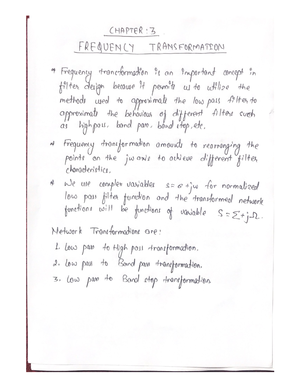 CHAPTER:3
FREQUENCY TRANSFORMATION
* Frequency transformation is an important concept in
filter design because it permits us to utilize the
methods used to approximate the low pass filter to
approximate the behaviour of different filters such
as high pass, band pass, band stop, etc.
* Frequency transformation amounts to rearranging the
points on the jω axis to achieve different filter
characteristics.
* We use complex variables s = σ + jω for normalized
low pass filter function and the transformed network
functions will be functions of variable S = Σ + jΩ.
Network Transformations are:
1. Low pass to High pass transformation.
2. Low pass to Band pass transformation.
3. Low pass to Band stop transformation.